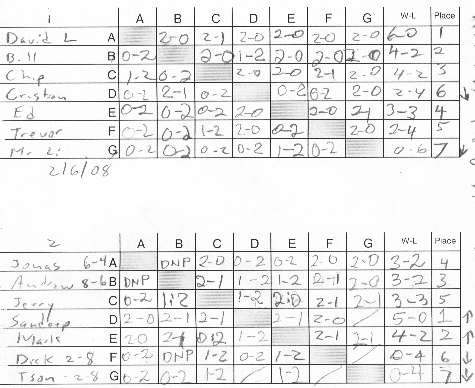 1 A B C D E F G W-L Place
David L A 2-0 2-1 2-0 2-0 2-0 2-0 6-0 1
Bill B 0-2 2-0 1-2 2-0 2-0 2-0 4-2 2
Chip C 1-2 0-2 2-0 2-0 2-1 2-0 4-2 3
Cristian D 0-2 2-1 0-2 0-2 0-2 2-0 2-4 6 ↓
Ed E 0-2 0-2 0-2 2-0 2-0 2-1 3-3 4
Trevor F 0-2 0-2 1-2 2-0 0-2 2-0 2-4 5
G 0-2 0-2 0-2 0-2 1-2 0-2 0-6 7 ↓
2/6/08
2 A B C D E F G W-L Place
Jonas 6-4 A DNP 2-0 0-2 0-2 2-0 2-0 3-2 4
Andrew 8-6 B DNP 2-1 1-2 1-2 2-1 2-0 3-2 3
Jerry C 0-2 1-2 1-2 2-0 2-1 2-1 3-3 5
Sandeep D 2-0 2-1 2-1 2-1 2-0 5-0 1 ↑
Mark E 2-0 2-1 0-2 1-2 2-1 2-1 4-2 2 ↑
Dick 2-8 F 0-2 DNP 1-2 0-2 1-2 0-4 6 ↓
Tson 2-8 G 0-2 0-2 1-2 1-2 0-4 7 ↓